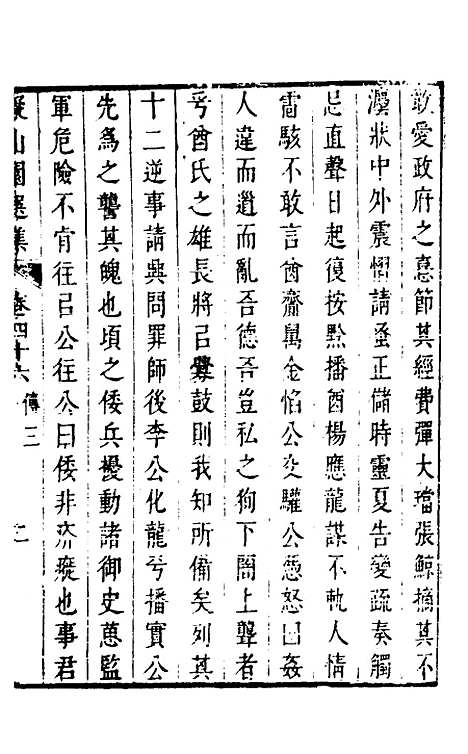 敢愛政府之惪節其經費彈大璫張鯨摘其不
灋狀中外震慴請蚤正儲時靈夏告變疏奏觸
忌直聲日起復按黔播酋楊應龍謀不軌人情
雷駭不敢言酋齎萬金餡公交驩公慿怒曰姦
人違而遁而亂吾德吾豈私之狥下闇上聾者
兮酋氏之雄長將㠯釁鼓則我知所備矣列其
十二逆事請興問罪師後李公化龍兮播實公
先爲之讋其魄也頃之倭兵擾動諸御史蒽監
軍危險不宵往呂公往公曰倭非疥癡也事君
擬山園選集 卷四十六 傳三 二